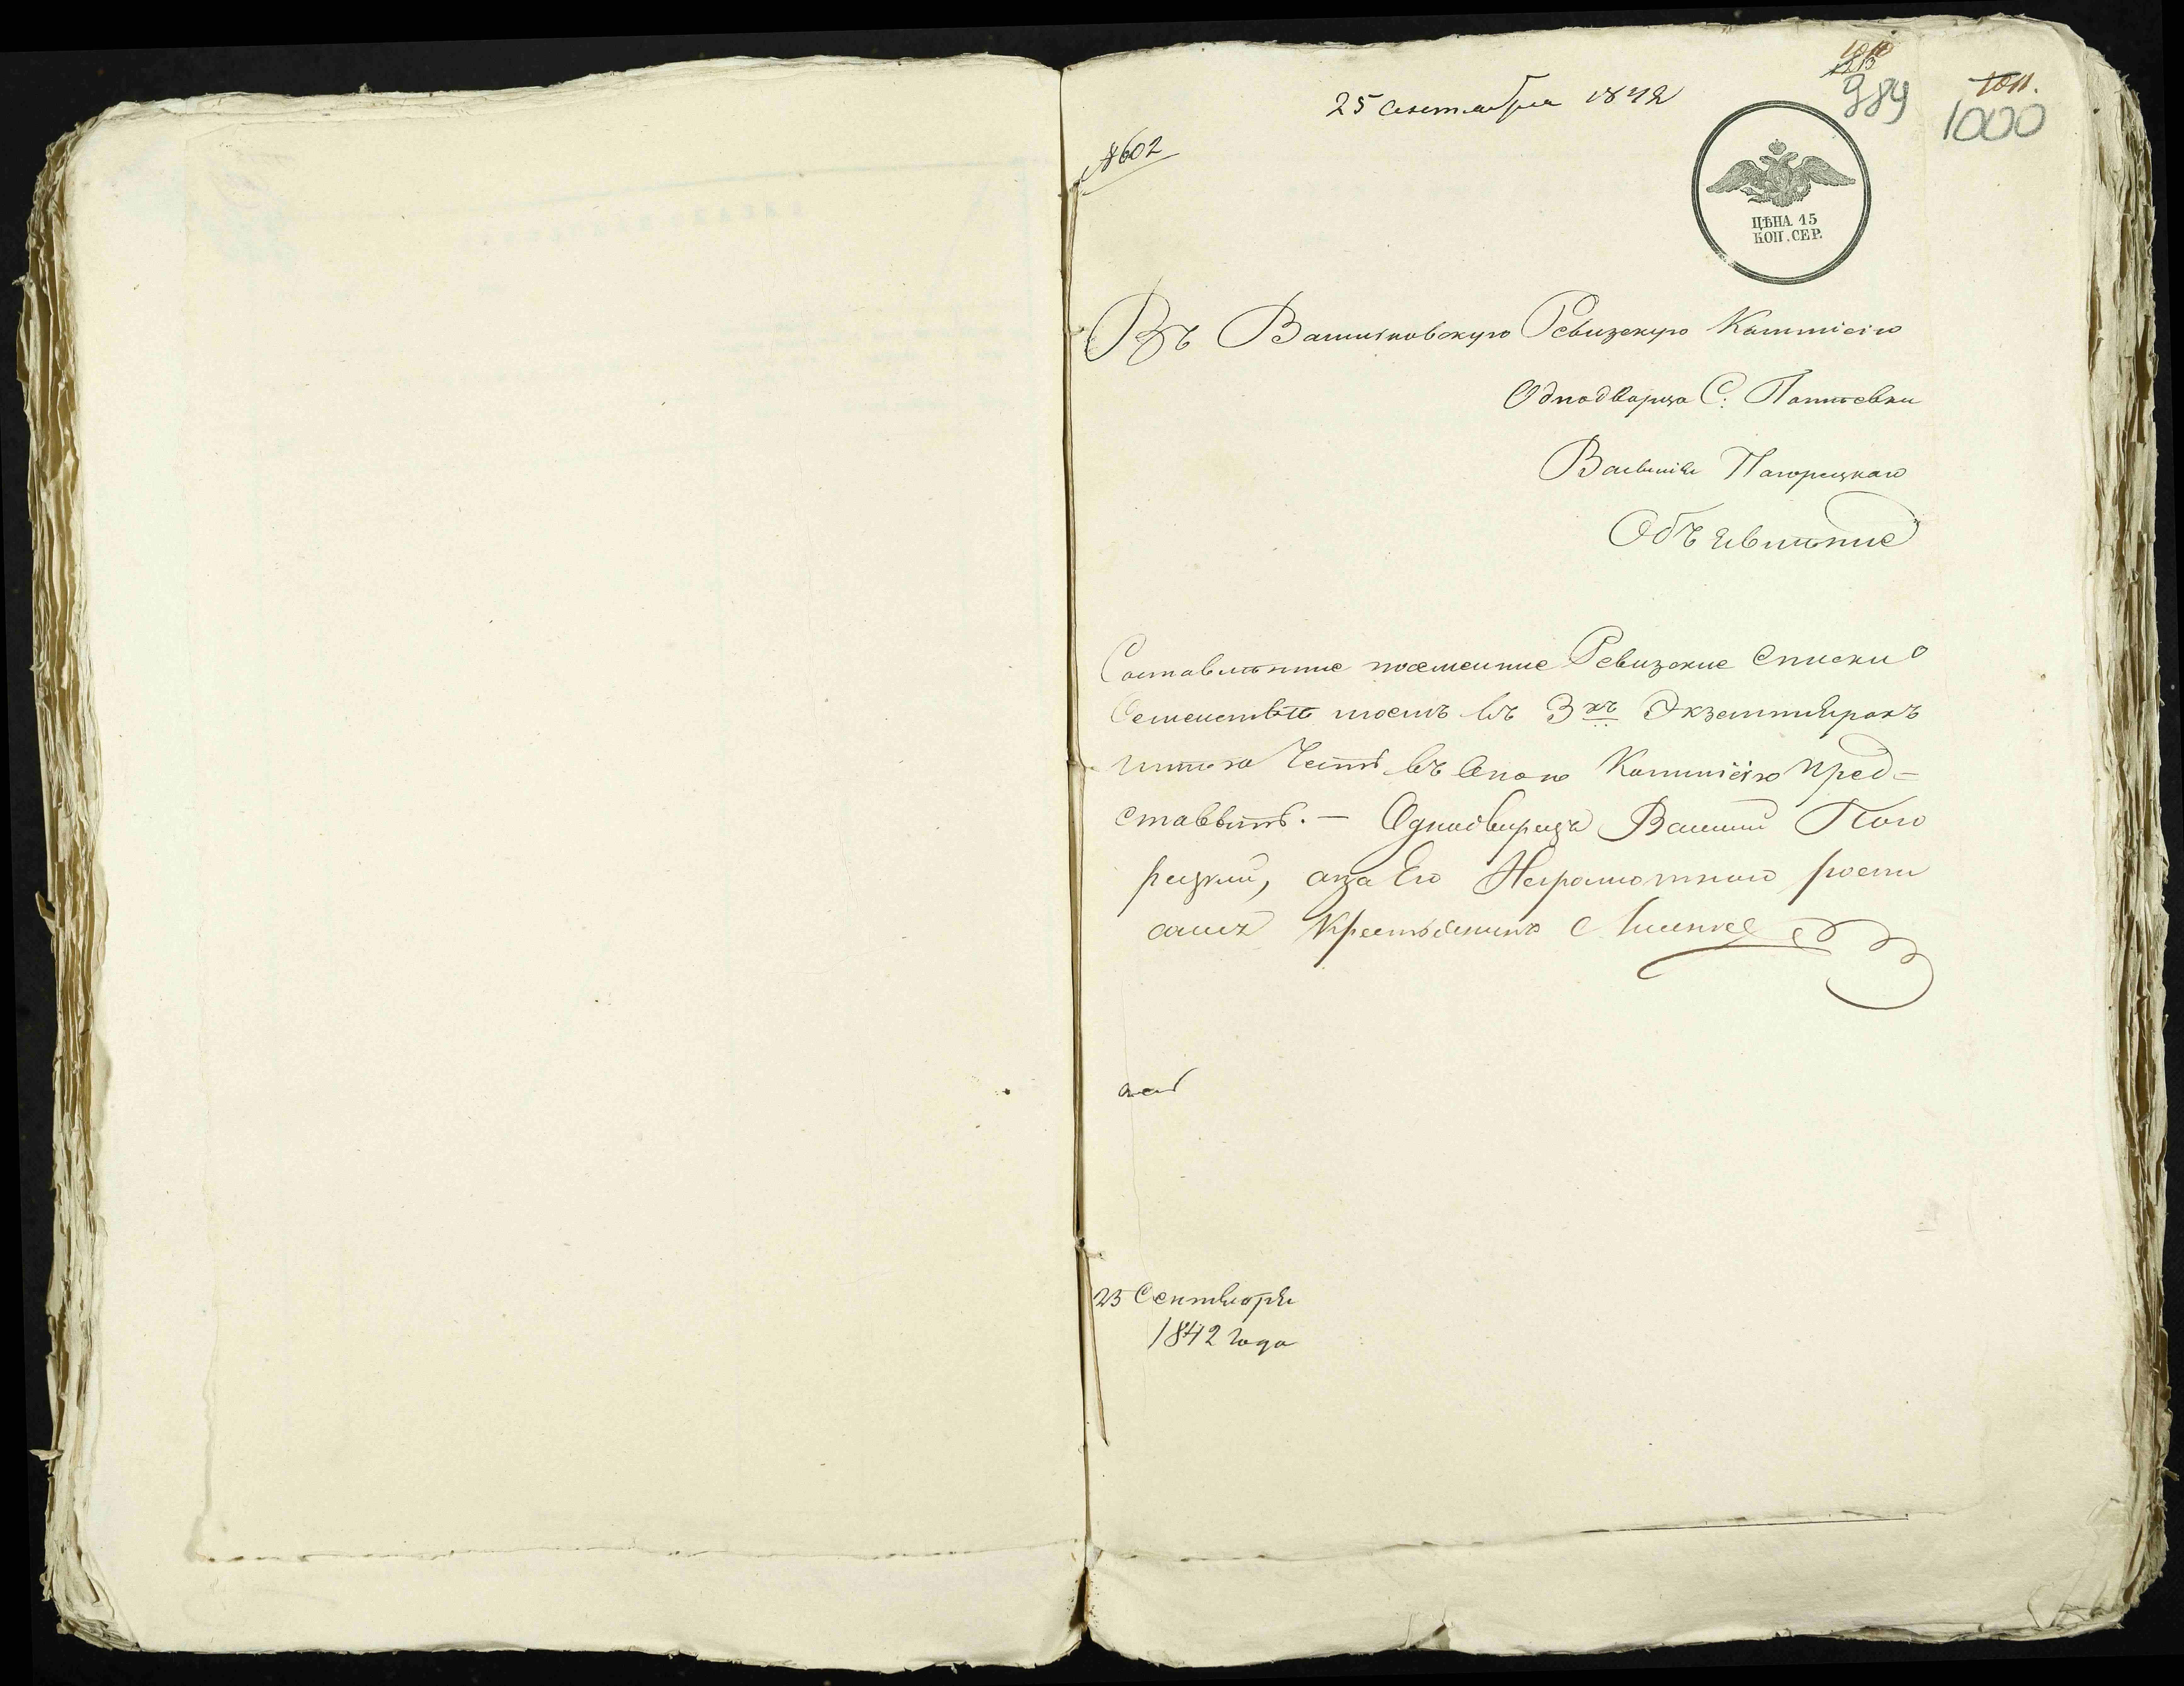 25 сентября 1842
1010
989
1011.
1000
№602
ЦѢНА 15
КОП. СЕР.
Въ Васильковскую Ревизскую Коммісію
Однодворца С:
Василія Погорецкаго
Объявленіе
Составленные посемейные Ревизские списки о
Семействе моемъ въ 3хъ Экземплярахъ
имею честь въ оною Коммисію пред=
ставить. — Однодворецъ Василий Пого
рецкий, а за Его Неграмотного роспи
сался Крестьянинъ
25 Сентября
1842 года